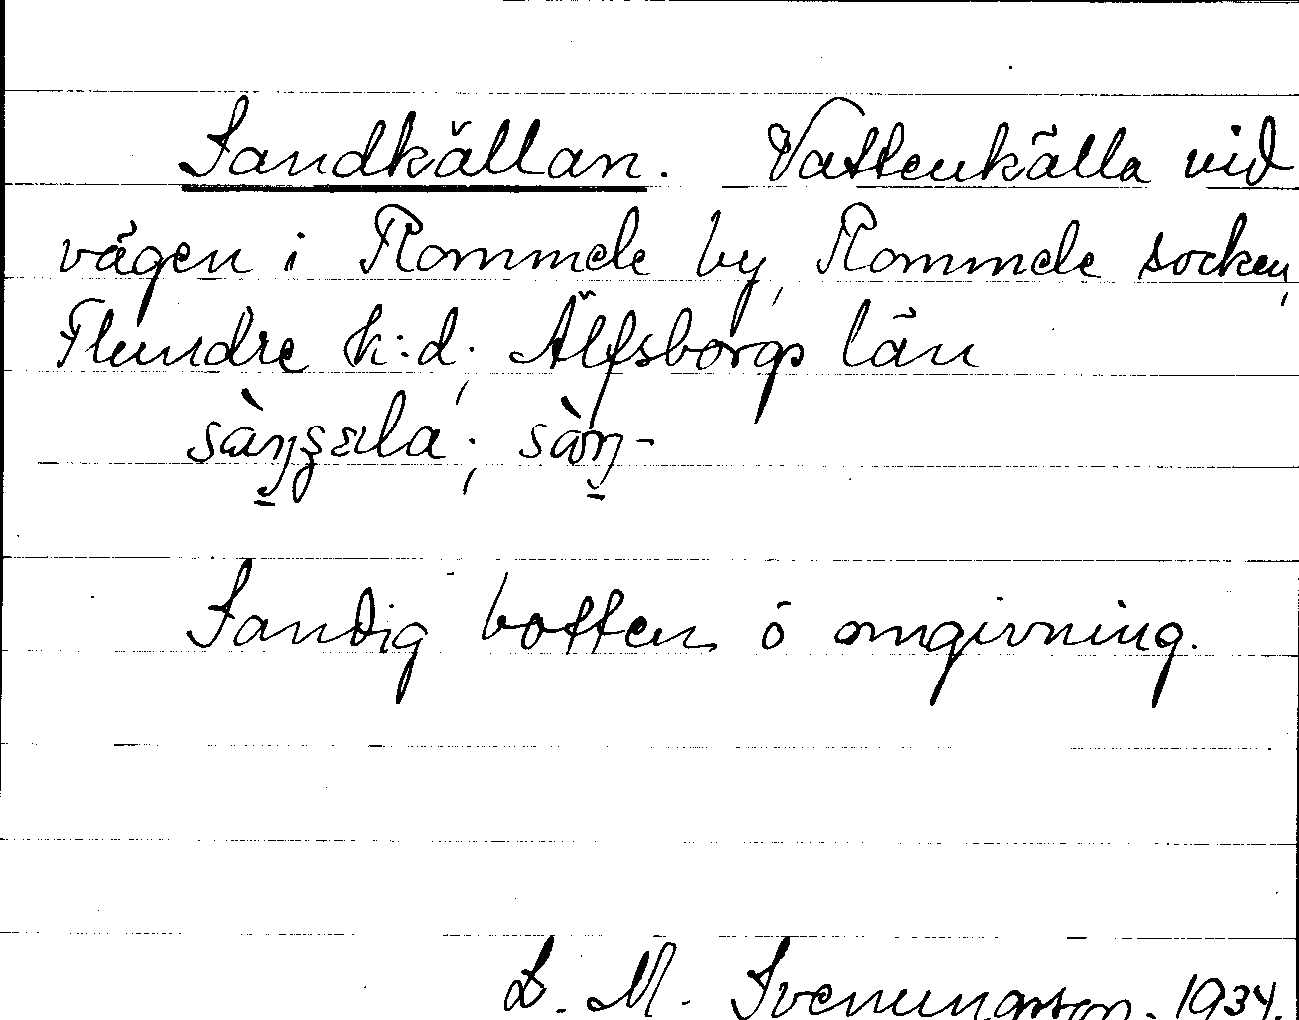 Sandkällan. Vattenkälla vid
vägen i Rommele by, Rommele socken,
Flundre h:d; Älfsborgs län
Sandig botten ö omgivning.
D. M. Svenungsson. 1934.